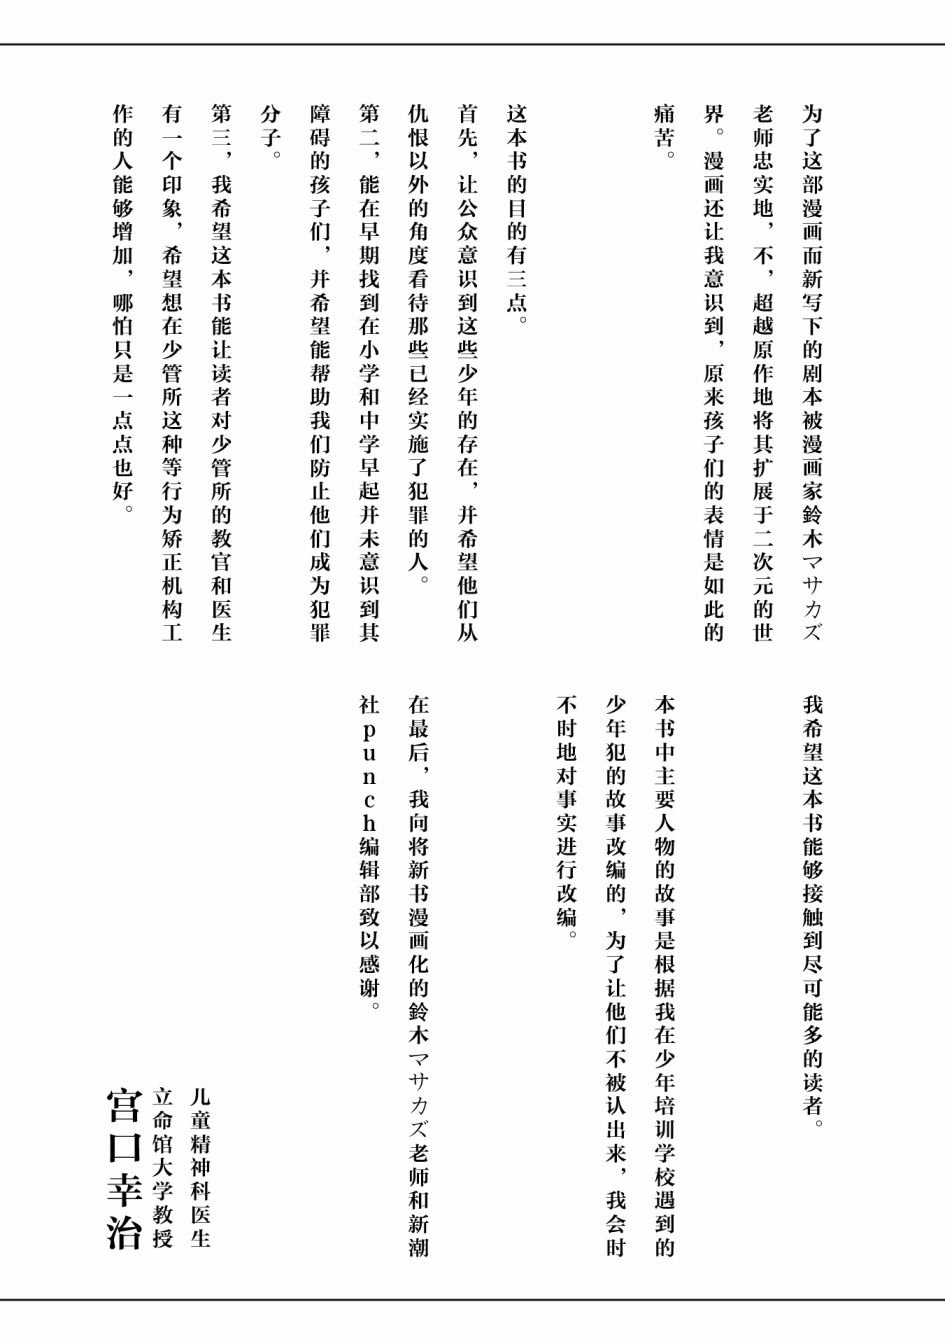 为了这部漫画而新写下的剧本被漫画家鈴木マサカズ
老师忠实地，不，超越原作地将其扩展于二次元的世
界。漫画还让我意识到，原来孩子们的表情是如此的
痛苦。
这本书的目的有三点。
首先，让公众意识到这些少年的存在，并希望他们从
仇恨以外的角度看待那些已经实施了犯罪的人。
第二，能在早期找到在小学和中学早起并未意识到其
障碍的孩子们，并希望能帮助我们防止他们成为犯罪
分子。
第三，我希望这本书能让读者对少管所的教官和医生
有一个印象，希望想在少管所这种等行为矫正机构工
作的人能够增加，哪怕只是一点点也好。
我希望这本书能够接触到尽可能多的读者。
本书中主要人物的故事是根据我在少年培训学校遇到的
少年犯的故事改编的，为了让他们不被认出来，我会时
不时地对事实进行改编。
在最后，我向将新书漫画化的鈴木マサカズ老师和新潮
社punch编辑部致以感谢。
儿童精神科医生
立命馆大学教授
宫口幸治